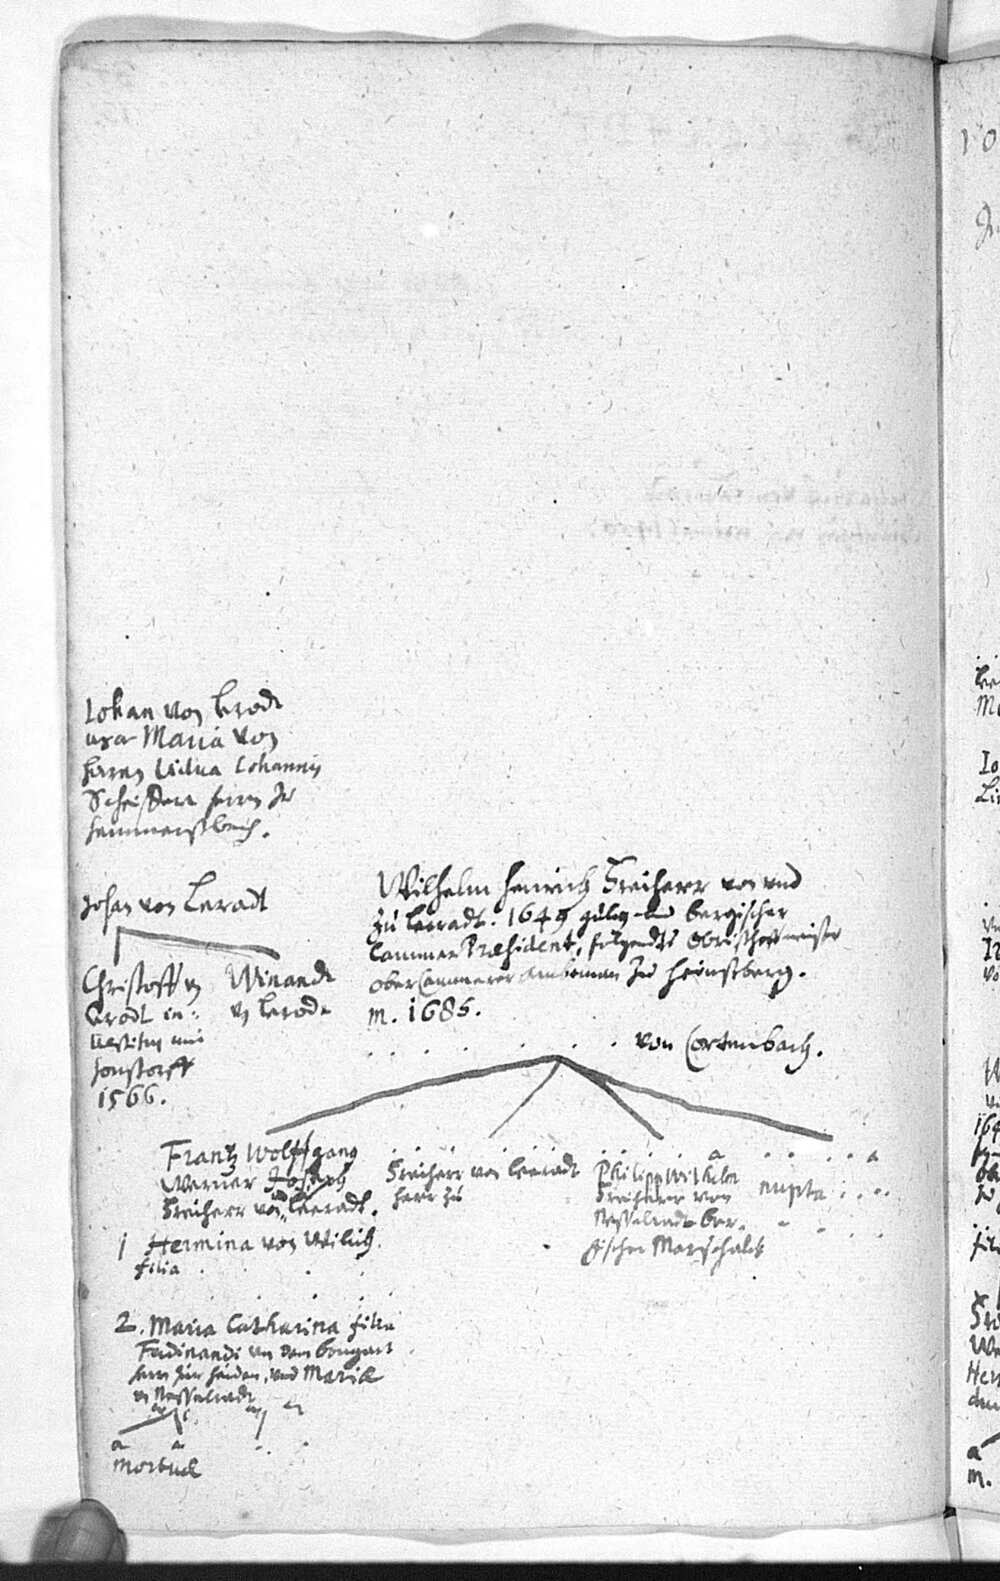 Johan von Lerode
uxor Maria von
herren Vidua Johannis
Scheiffart herrn Zu
hemmersbach.
Johan von Leradt
Christoff v
Lerodt in:
vestitus mit
honstorff
1566.
Winandt
v Lerode
Wilhelm henrich Freiherr von und
zu Leeradt. 1649 gülig und bergischer
Cammer Præsident, folgendts Obristhoffmeister
ober Cammerer Ambtman Zu heinsberg.
m. 1685.
. . . . . . von Cortenbach.
Frantz Wolffgang
Werner Joseph
Freiherr von Leeradt.
1 Hermina von Wilich
filia
2. Maria Catharina filia
Ferdinandi von dem bongart
herrn zur heiden, und Mariæ
v Nesselradt
a a
mortuæ
Freiherr von Leeradt
herr zu
a
Philipp Wilhelm
Freiherr von
Nesselradt ber-
gischer Marschalck
a
nupta . . . .